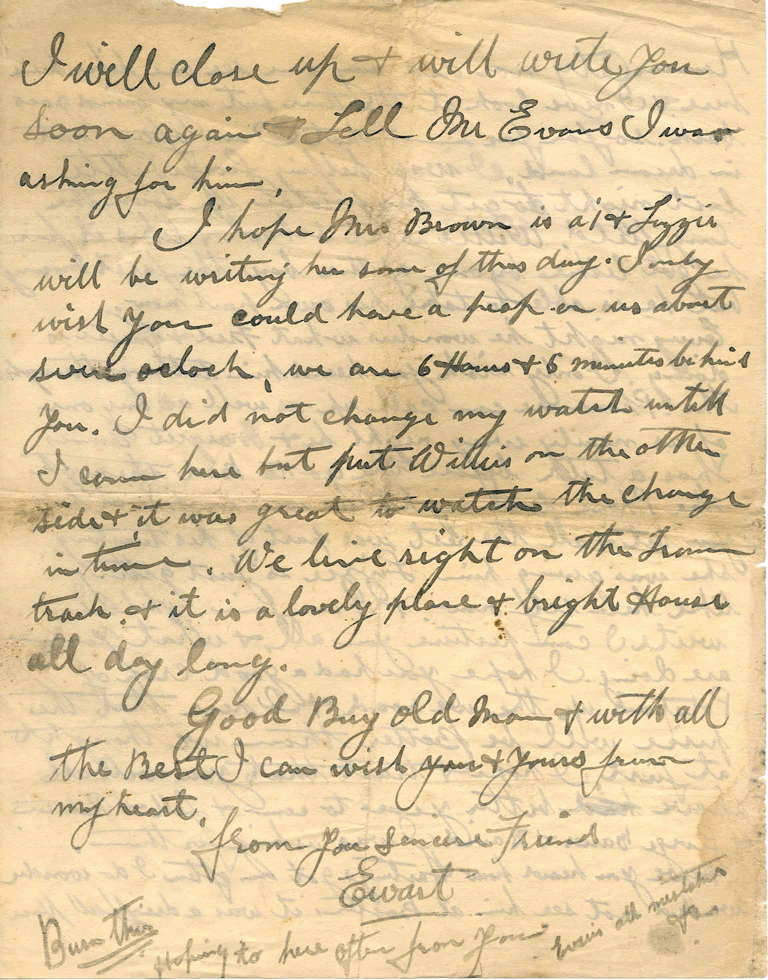 I will close up & will write you
soon again & Tell Mr Evans I was
asking for him,
I hope Mrs Brown is a1 & Lizzie
will be writing her some of thes day. I only
wish you could have a peap on us about
seven oclock, we are 6 Hours & 6 minutes behind
you. I did not change my watch untill
I came here but put Willis on the other
side & it was great to watch the change
in time. We live right on the Tram
track. & it is a lovely place & bright House
all day long.
Good Buy old man & with all
the Best I can wish you & yours from
my heart.
from you sincere Friend
Ewart
Burn this
Hoping to here often from you
all mistakes